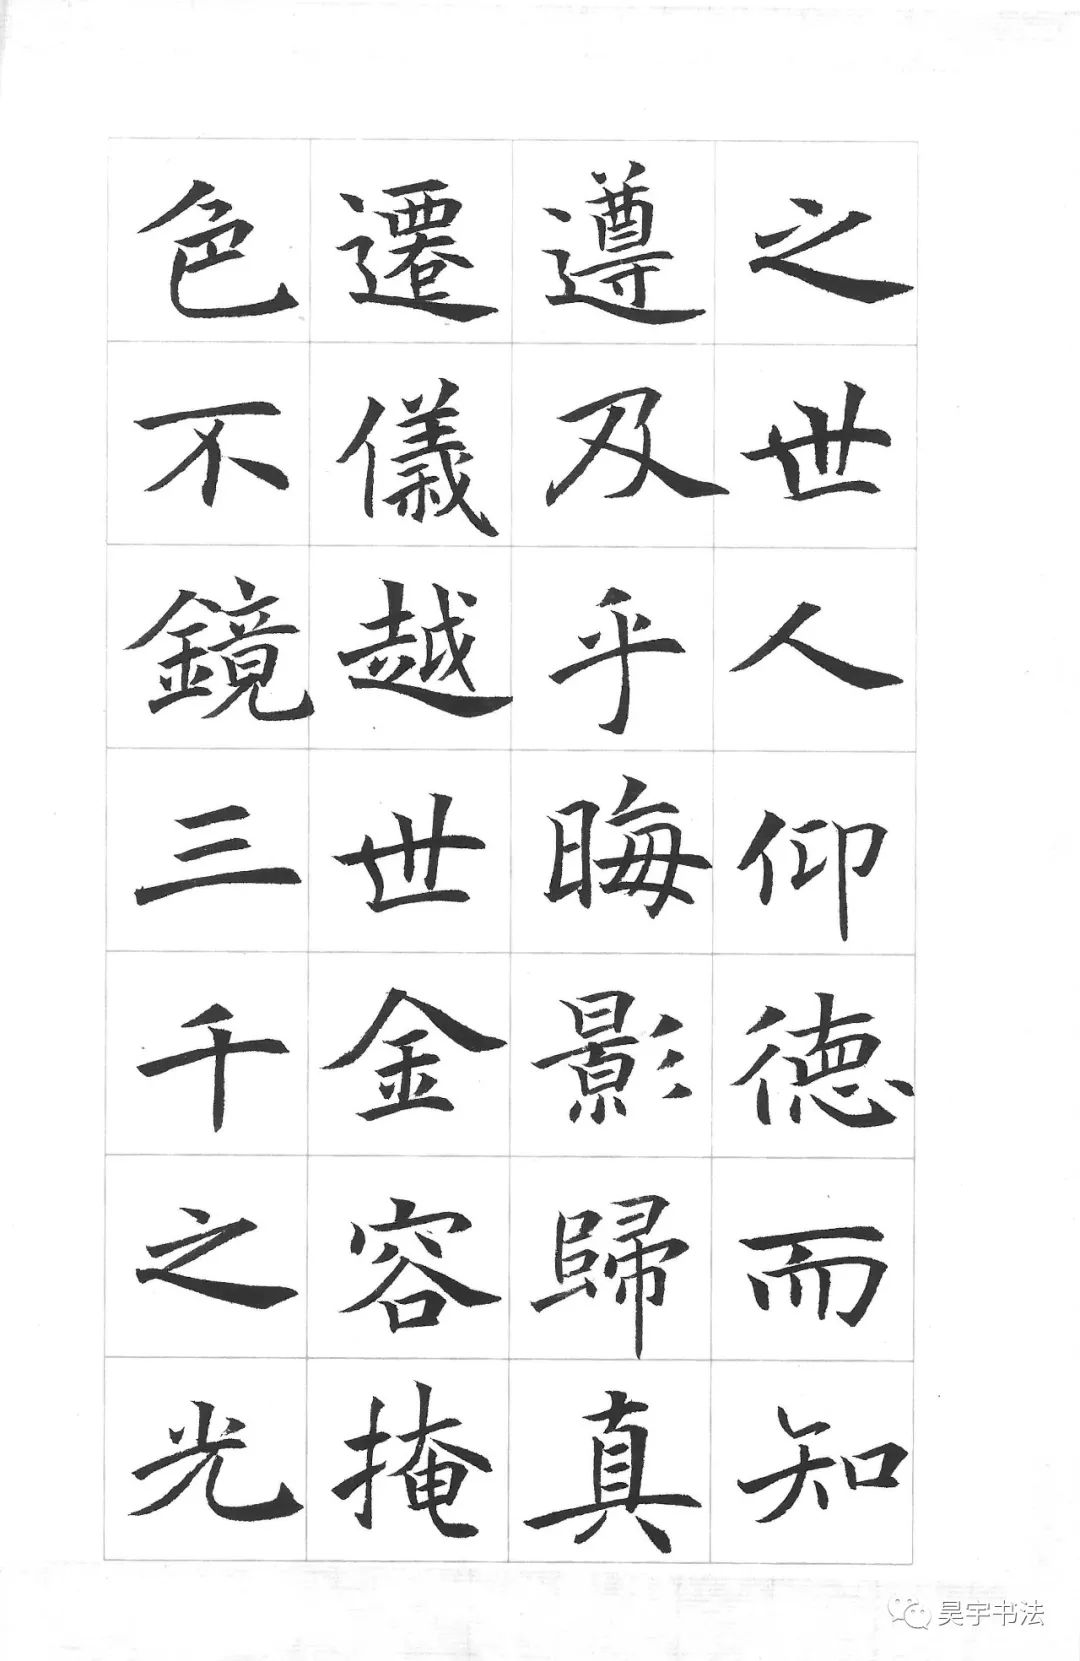 之世人仰德而知
遵及乎晦影歸真
遷儀越世金容掩
色不鏡三千之光
昊宇书法